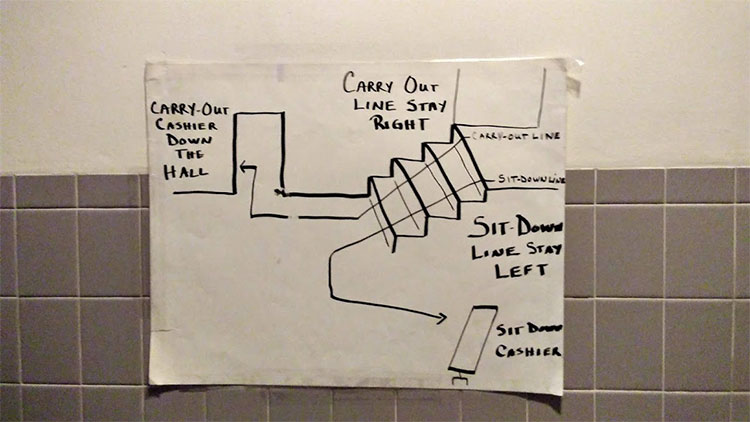 CARRY-OUT
CASHIER
DOWN
THE
HALL
CARRY OUT
LINE STAY
RIGHT
CARRY-OUT LINE
SIT-DOWN LINE
SIT-DOWN
LINE STAY
LEFT
SIT DOWN
CASHIER